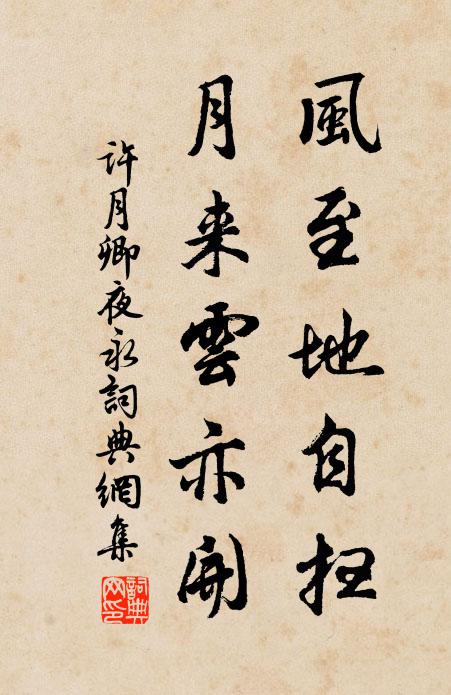 風至地自掃
月来雲亦開
許月卿夜永詞典網集
詞典网印